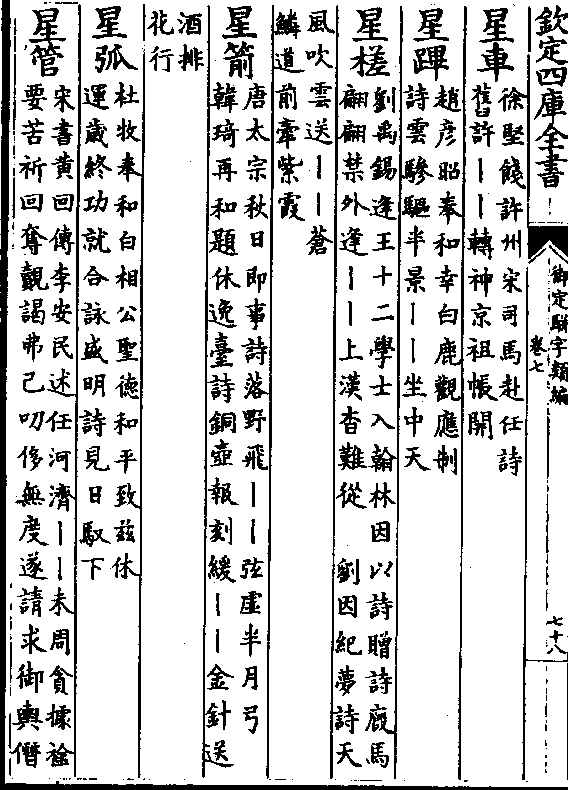 欽定四庫全書
御定駢字類編
卷七
七十八
星車
徐堅餞許州宋司馬赴任詩
舊許丨丨轉神京祖帳開
星蹕
趙彦昭奉和幸白鹿觀應制
詩雲驂驅半景丨丨坐中天
星槎
劉禹錫逢王十二學士入翰林因以詩贈詩廐馬
翩翩禁外逢丨丨上漢杳難從 劉因紀夢詩天
風吹雲送丨丨蒼
鱗道前牽紫霞
星箭
唐太宗秋日即事詩落野飛丨丨弦虚半月弓
韓琦再和題休逸臺詩銅壺報刻緩丨丨金針送
酒排
花行
星弧
杜牧奉和白相公聖德和平致兹休
運歲終功就合詠盛明詩見日馭下
星管
宋書黄回傳李安民述任河濟丨丨未周貪據襘
要苦祈回奪覬謁弗已叨侈無度遂請求御輿僭